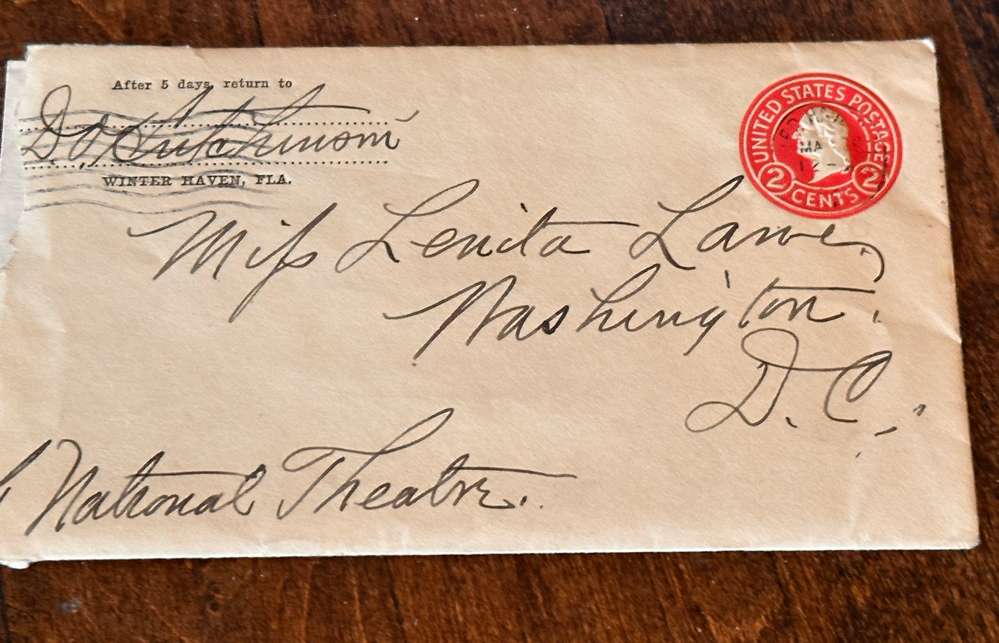 After 5 days, return to
D. J. Hutchinson
WINTER HAVEN, FLA.
UNITED STATES POSTAGE
2 CENTS 2
Miss Lenita Lane,
Washington.
D. C.,
National Theatre.